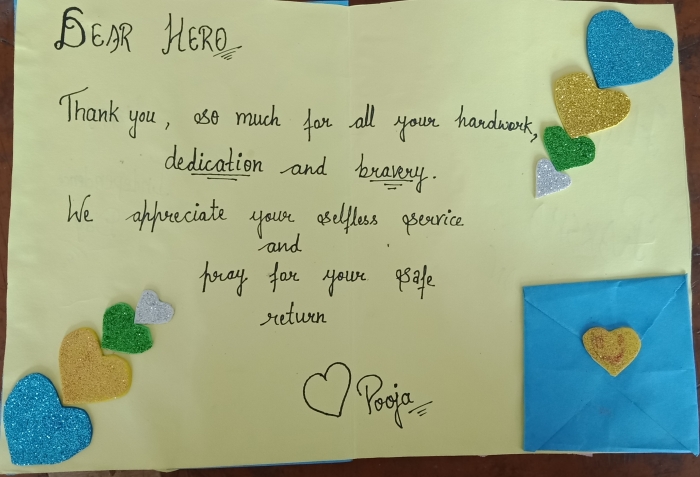 DEAR HERO
Thank you, so much for all your hardwork,
dedication and bravery.
We appreciate your selfless service
and
pray for your safe
return
Pooja